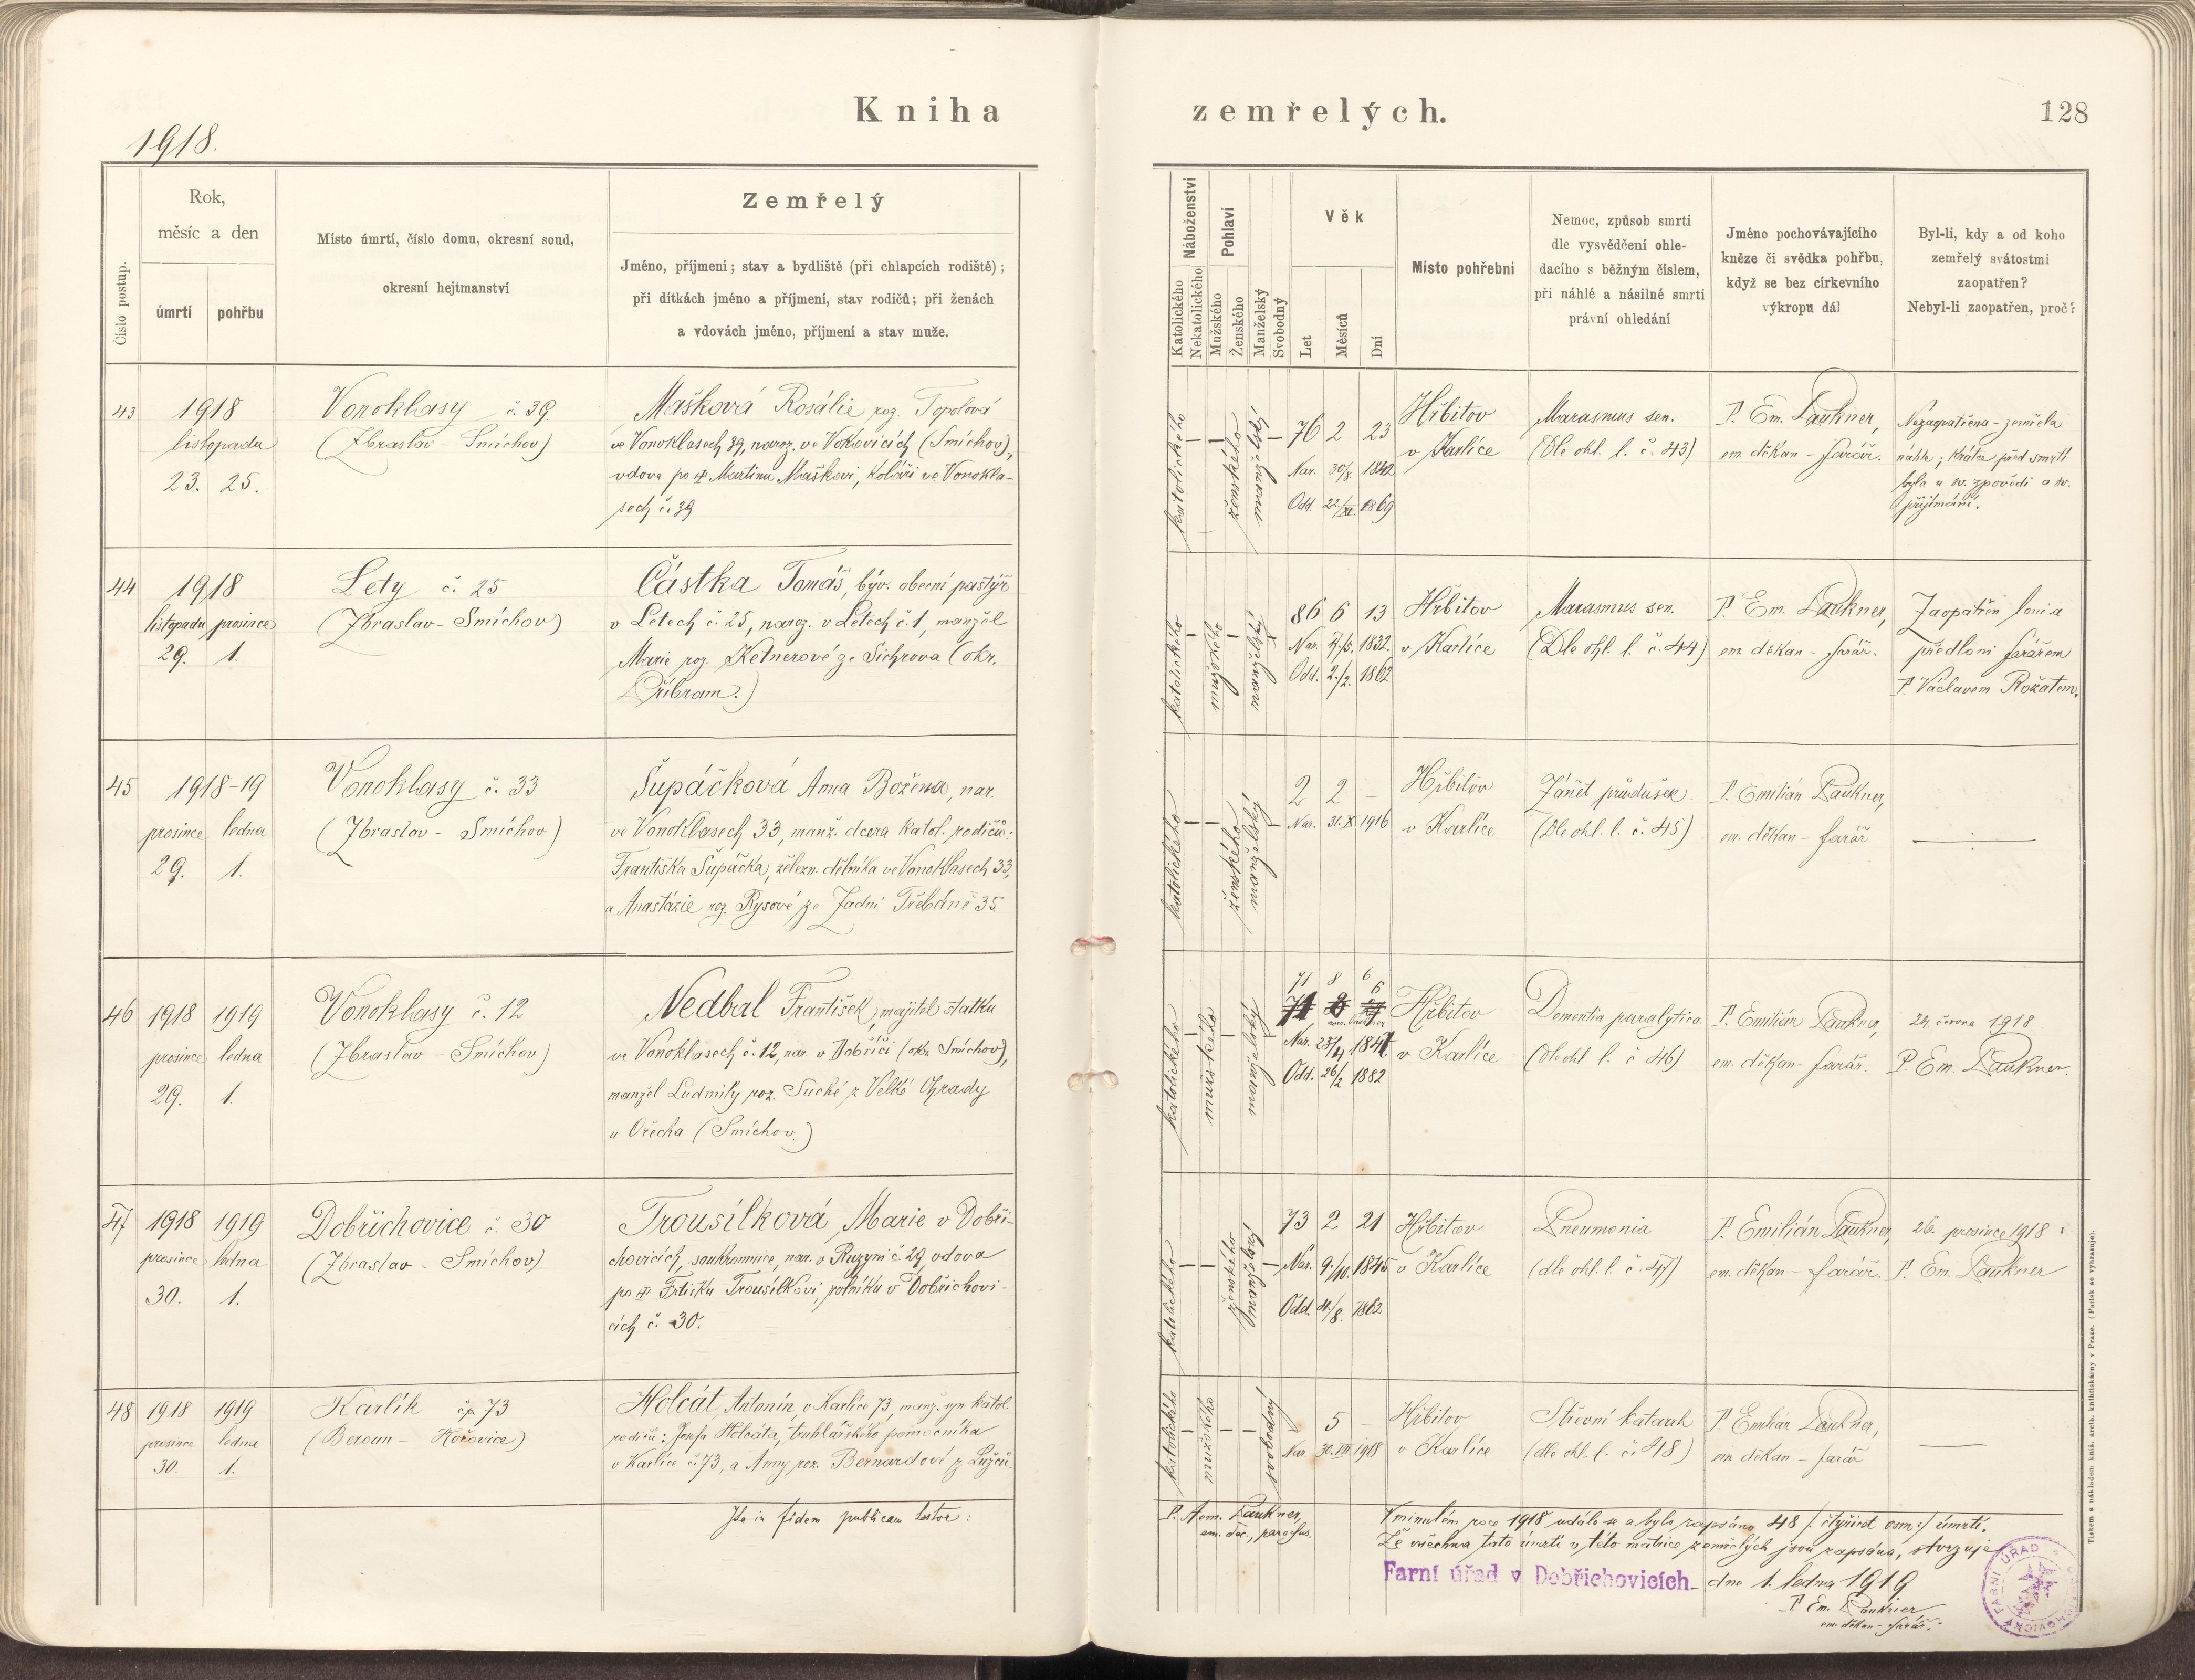 Kniha zemřelých.
128
1918.
Číslo postup.
Rok,
měsíc a den
úmrtí
pohřbu
Místo úmrtí, číslo domu, okresní soud,
okresní hejtmanství
Zemřelý
Jméno, příjmení; stav a bydliště (při chlapcích rodiště);
při dítkách jméno a příjmení, stav rodičů; při ženách
a vdovách jméno, příjmení a stav muže.
Náboženství
Katolického
Nekatolického
Pohlaví
Mužského
Ženského
Manželský
Svobodný
Věk
Let
Měsíců
Dní
Místo pohřební
Nemoc, způsob smrti
dle vysvědčení ohle-
dacího s běžným číslem,
při náhlé a násilné smrti
právní ohledání
Jméno pochovávajícího
kněze či svědka pohřbu,
když se bez církevního
výkropu dál
Byl-li, kdy a od koho
zemřelý svátostmi
zaopatřen?
Nebyl-li zaopatřen, proč?
43
1918
listopadu
23. 25.
Vonoklasy č. 39
(Zbraslav - Smíchov)
Mašková Rosálie roz. Topolová
ve Vonoklasech 39, naroz. ve Vokovicích (Smíchov),
vdova po Martinu Maškovi, koláři ve Vonokla-
sech č. 39
katolického
ženského
manželský
76 2 23
Nar. 30/8. 1842
Odd. 22/XI. 1869
Hřbitov
v Karlíce
Marasmus sen.
(Dle ohl. l. č. 43)
P. Em. Paukner,
em. děkan - farář.
Nezaopatřena - zemřela
náhle; krátce před smrtí
byla u sv. zpovědi a sv.
přijímání.
44
1918
listopadu prosince
29. 1.
Lety č. 25
(Zbraslav - Smíchov)
Částka Tomáš, býv. obecní pastýř
v Letech č. 25, naroz. v Letech č. 1, manžel
Marie roz. Ketnerové ze Sichrova (okr.
Příbram.)
katolického
mužského
manželský
86 6 13
Nar. 1832.
Odd. 2./2. 1862
Hřbitov
v Karlíce
Marasmus sen.
(Dle ohl. l. č. 44)
P. Em. Paukner,
em. děkan - farář.
Zaopatřen loni a
předloni farářem
P. Václavem Rožátem.
45
1918-19
prosince ledna
29. 1.
Vonoklasy č. 33
(Zbraslav - Smíchov)
Šupáčková Anna Božena, nar.
ve Vonoklasech 33, manž. dcera katol. rodičů:
Františka Šupáčka, železn. dělníka ve Vonoklasech 33,
a Anastázie roz. Rysové ze Zadní Třebáně 35.
katolického
ženského
manželský
2 2 —
Nar. 31. X. 1916
Hřbitov
v Karlíce
Zánět průdušek
(Dle ohl. l. č. 45)
P. Emilián Paukner,
em. děkan - farář
46
1918 1919
prosince ledna
29. 1.
Vonoklasy č. 12
(Zbraslav - Smíchov)
Nedbal František, majitel statku
ve Vonoklasech č. 12, nar. v Dobříči (okr. Smíchov),
manžel Ludmily roz. Suché z Velké Ohrady
u Ořecha (Smíchov.)
katolického
mužského
manželský
71 8 6
Nar. 23/4 1847
Odd. 26/2 1882
Hřbitov
v Karlíce
Dementia paralytica
(dle ohl. l. č. 46)
P. Emilián Paukner,
em. děkan - farář.
24. června 1918
P. Em. Paukner.
47
1918 1919
prosince ledna
30. 1.
Dobřichovice č. 30
(Zbraslav - Smíchov)
Trousílková Marie v Dobři-
chovicích, soukromnice, nar. v Ruzyni č. 29, vdova
po Frtišku Trousílkovi, rolníku v Dobřichovi-
cích č. 30.
katolického
ženského
manželský
73 2 21
Nar. 9./10. 1845
Odd. 4./8. 1862
Hřbitov
v Karlíce
Pneumonia
(dle ohl. l. č. 47)
P. Emilián Paukner,
em. děkan - farář.
26. prosince 1918:
P. Em. Paukner
48
1918 1919
prosince ledna
30. 1.
Karlík čp. 73
(Beroun - Hořovice)
Holcát Antonín v Karlíce 73, manž. syn katol.
rodičů: Josefa Holcáta, truhlářského pomocníka
v Karlíce č. 73, a Anny roz. Bernardové z Lužců.
katolického
mužského
svobodný
— 5 —
Nar. 30. VII. 1918
Hřbitov
v Karlíce
Střevní katarrh
(dle ohl. l. č. 48)
P. Emilián Paukner,
em. děkan - farář
Ita in fidem publicam testor:
P. Aem. Paukner,
em. dec., parochus.
V minulém roce 1918 událo se a bylo zapsáno 48 /: čtyřicet osm :/ úmrtí.
Že všechna tato úmrtí v této matrice zemřelých jsou zapsána, stvrzuje
Farní úřad v Dobřichovicích dne 1. ledna 1919
P. Em. Paukner
em. děkan - farář.
FARNÍ ÚŘAD
Tiskem a nákladem kníž. arcib. knihtiskárny v Praze. (Patisk se vyhrazuje).